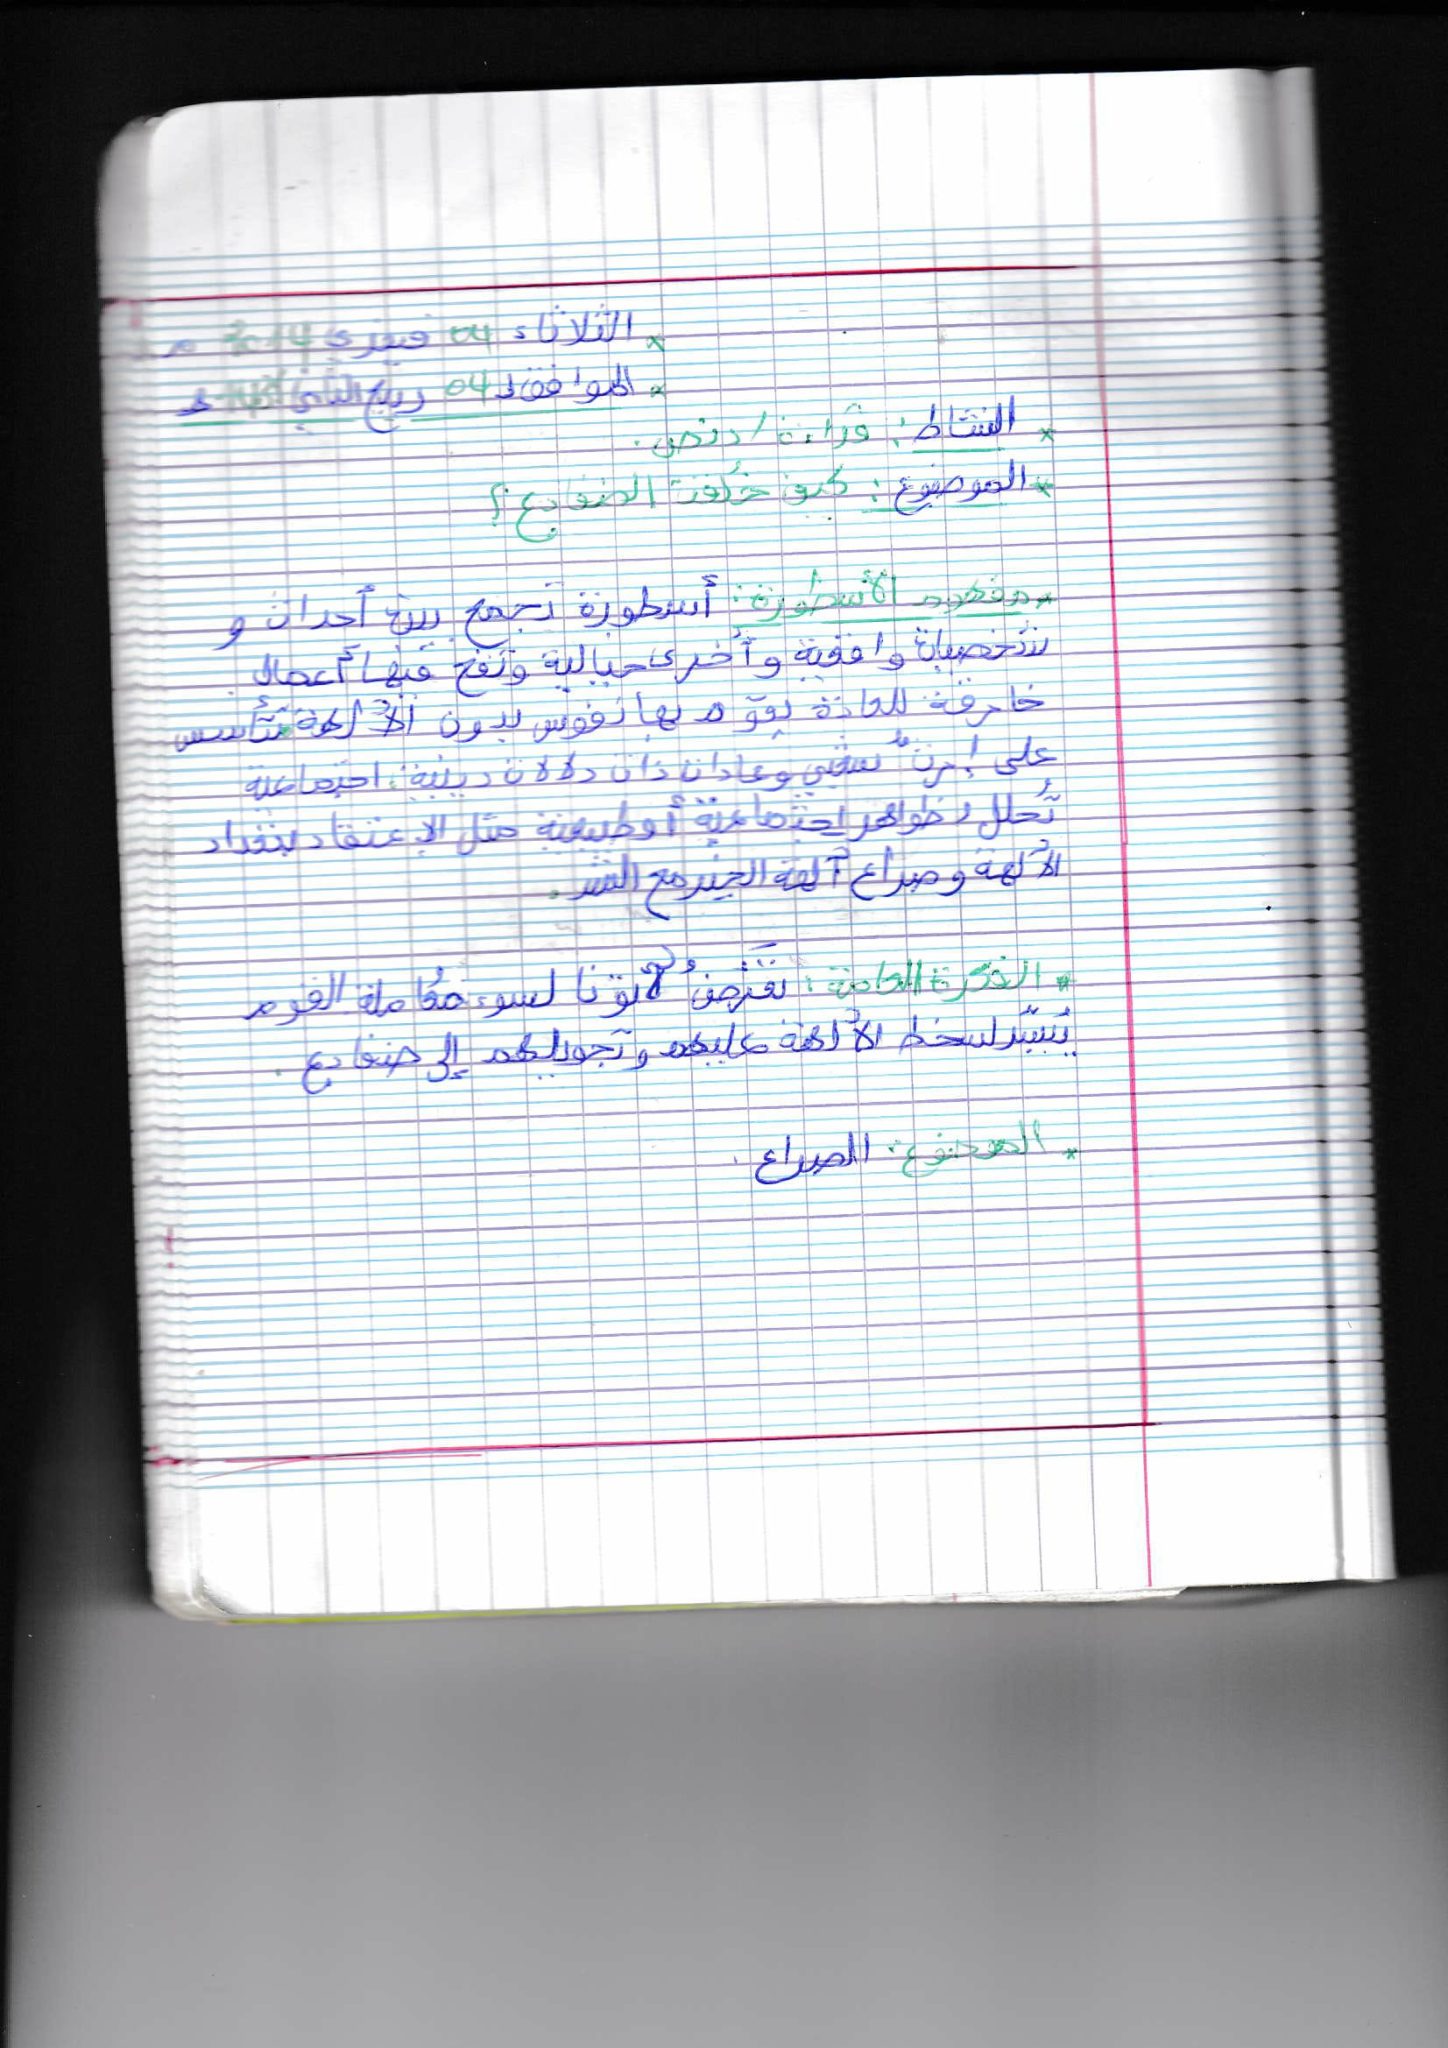 * الثلاثاء 04 فيفري 2014 م
* الموافق لـ 04 ربيع الثاني هـ
* النشاط: قراءة / نص.
* الموضوع: كيف خلقت الضفادع؟
* مفهوم الأسطورة: أسطورة تجمع بين أحداث و
شخصيات واقعية وأخرى خيالية وتقع فيها أعمال
خارقة للعادة يقوم بها نفوس بدون الآلهة تتأسس
على وعادات ذات دلالات دينية، اجتماعية
تحلل ظواهر اجتماعية أو طبيعية مثل الاعتقاد بتعداد
الآلهة وصراع آلهة الخير مع الشر.
* الفكرة العامة: تعرض لاتونا لسوء معاملة القوم
لسخط الآلهة عليهم وتحويلهم إلى ضفادع.
* الموضوع: الصراع.